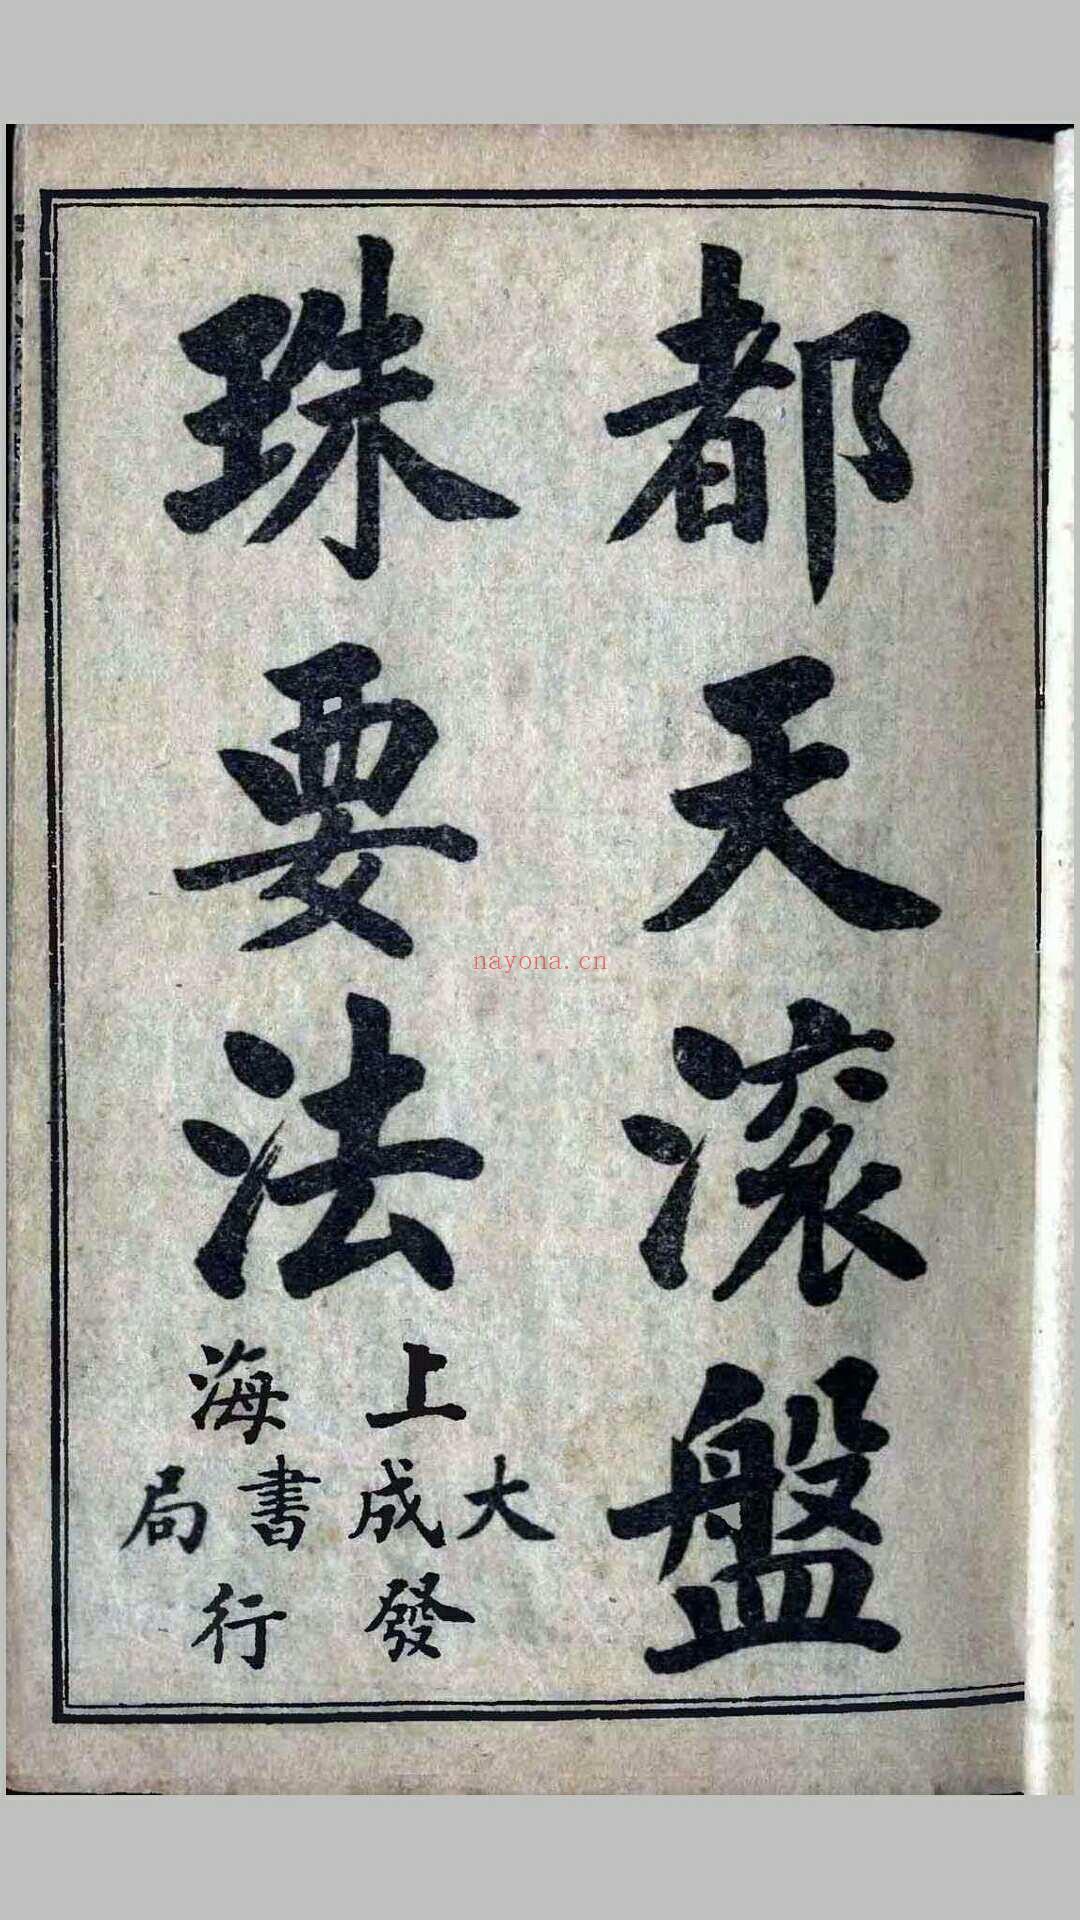 都天滚盤
珠要法
上海
大成書局
發行
nayona.cn